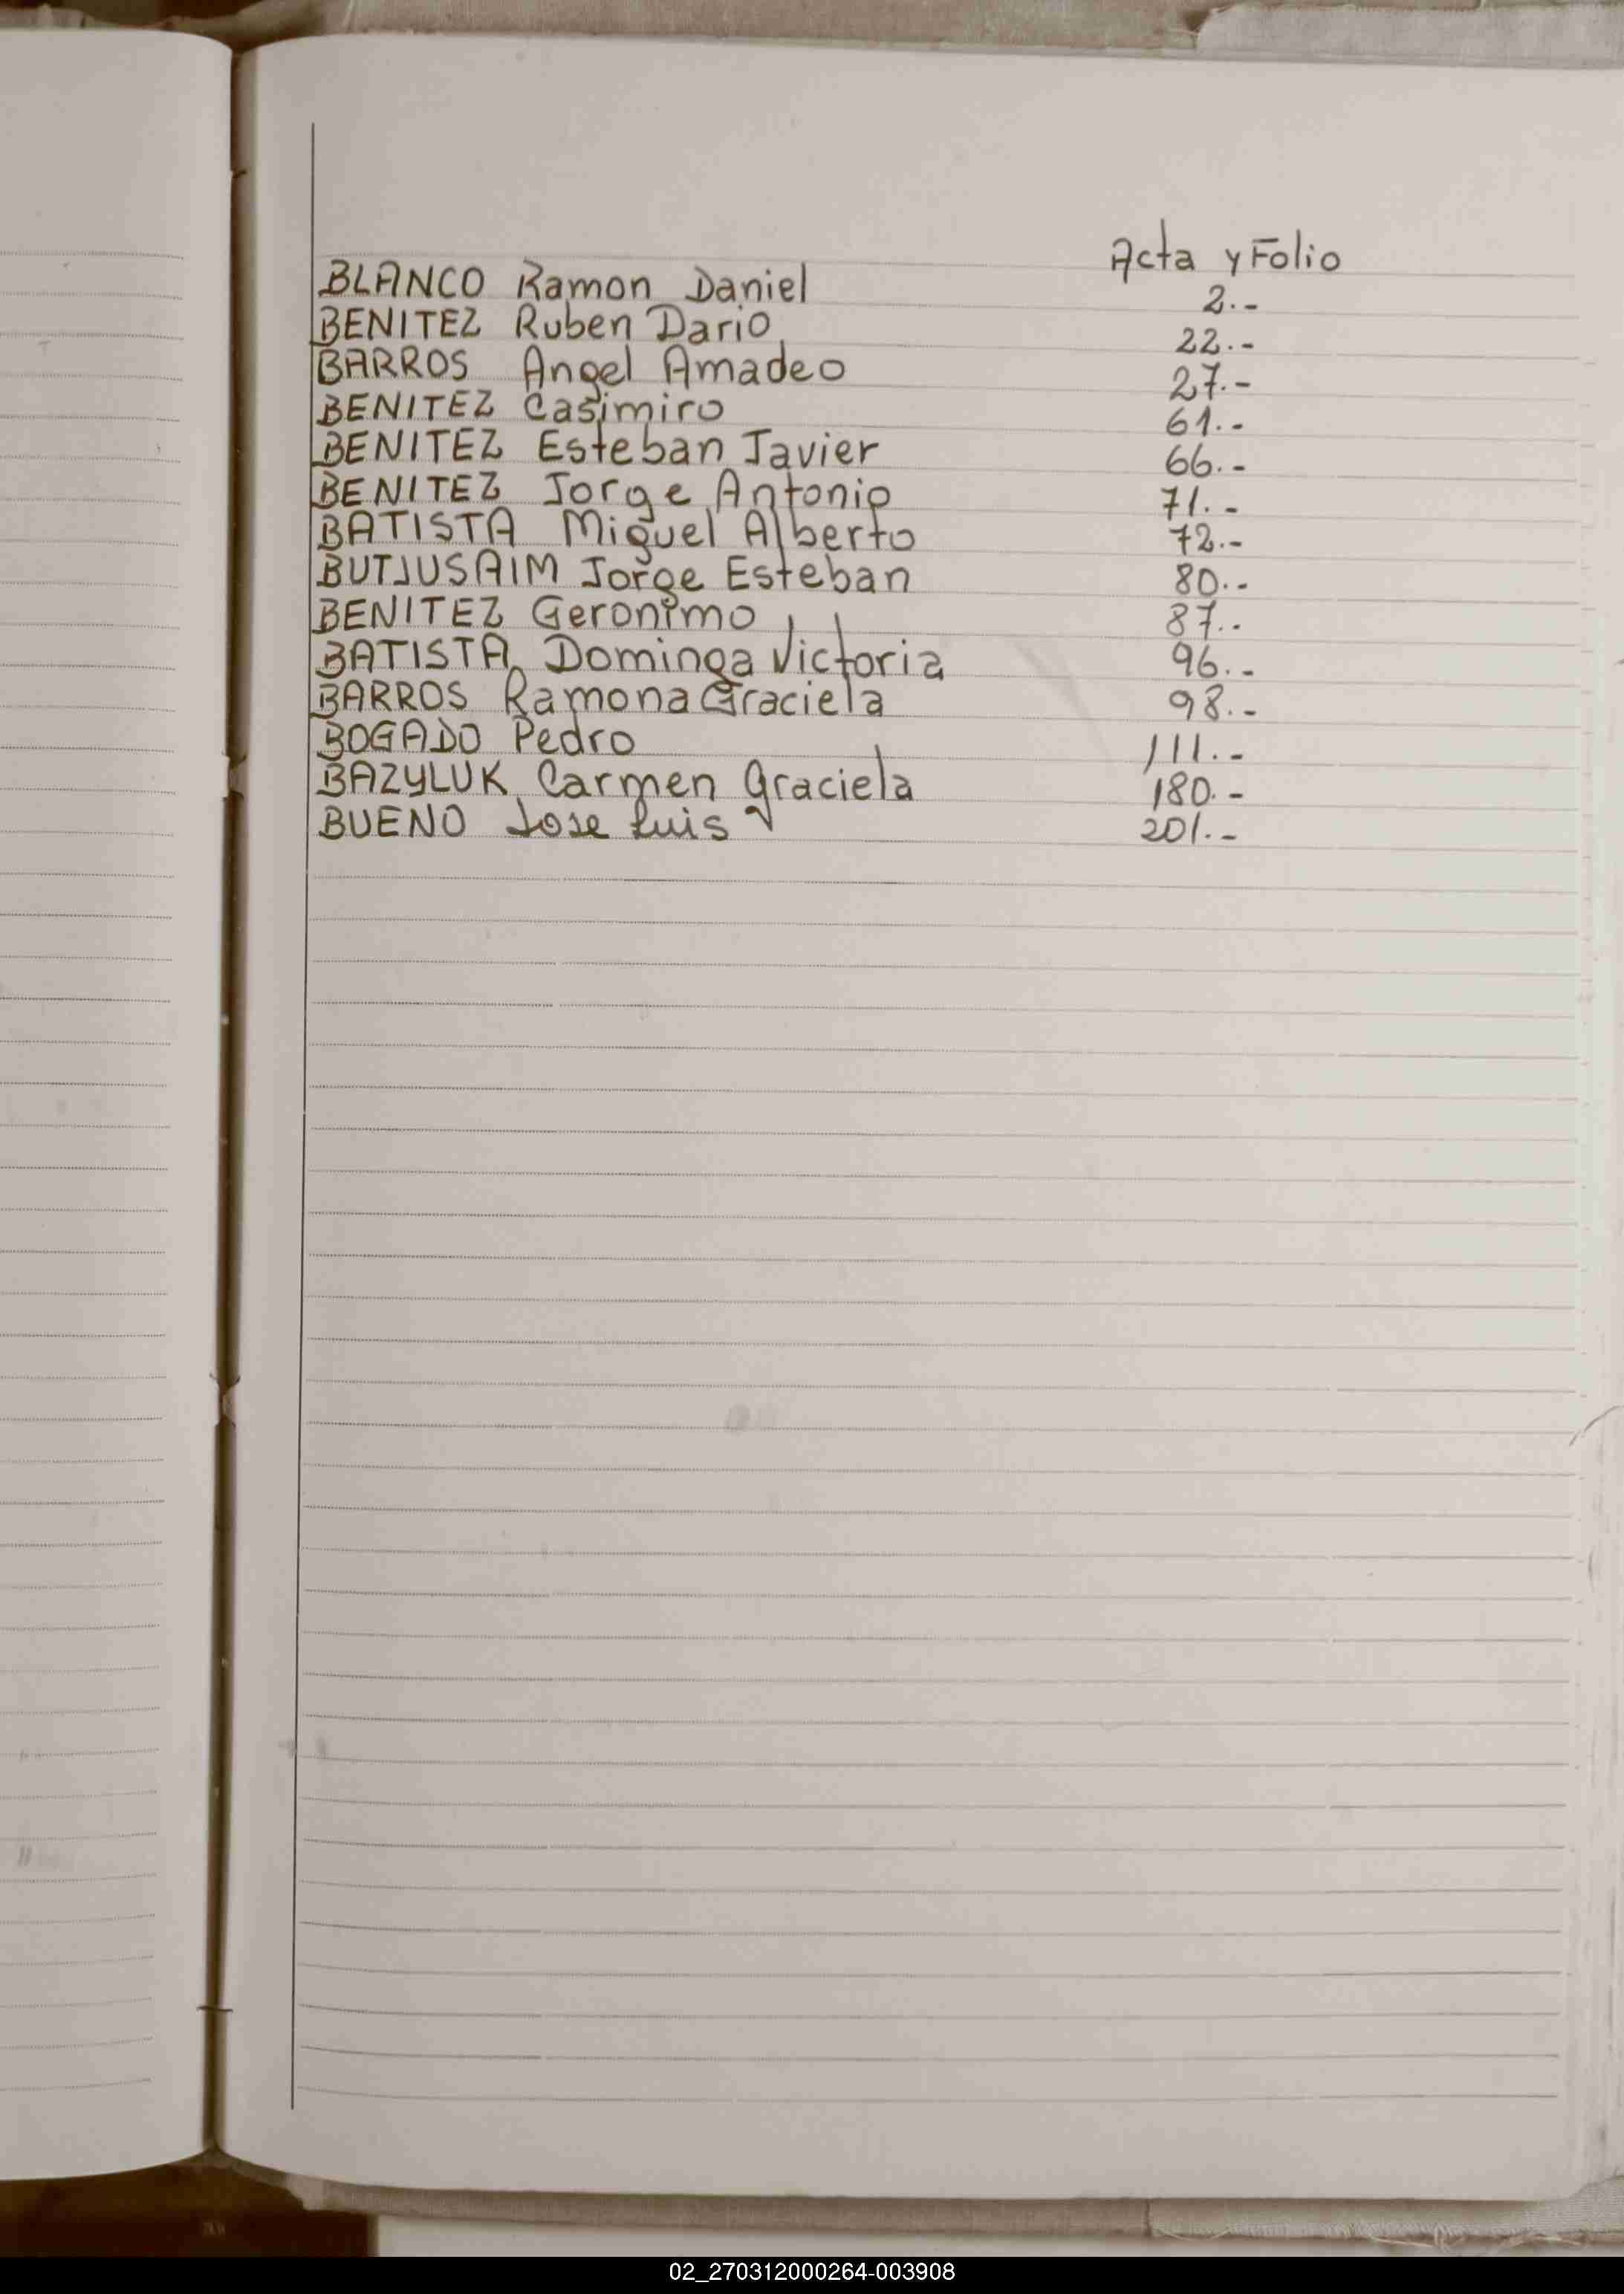 Acta y Folio
BLANCO Ramon Daniel 2.-
BENITEZ Ruben Dario 22.-
BARROS Angel Amadeo 27.-
BENITEZ Casimiro 61.-
BENITEZ Esteban Javier 66.-
BENITEZ Jorge Antonio 71.-
BATISTA Miguel Alberto 72.-
BUTJUSAIM Jorge Esteban 80.-
BENITEZ Geronimo 87.-
BATISTA Dominga Victoria 96.-
BARROS Ramona Graciela 98.-
BOGADO Pedro 111.-
BAZYLUK Carmen Graciela 180.-
BUENO Jose Luis 201.-
02_270312000264-003908